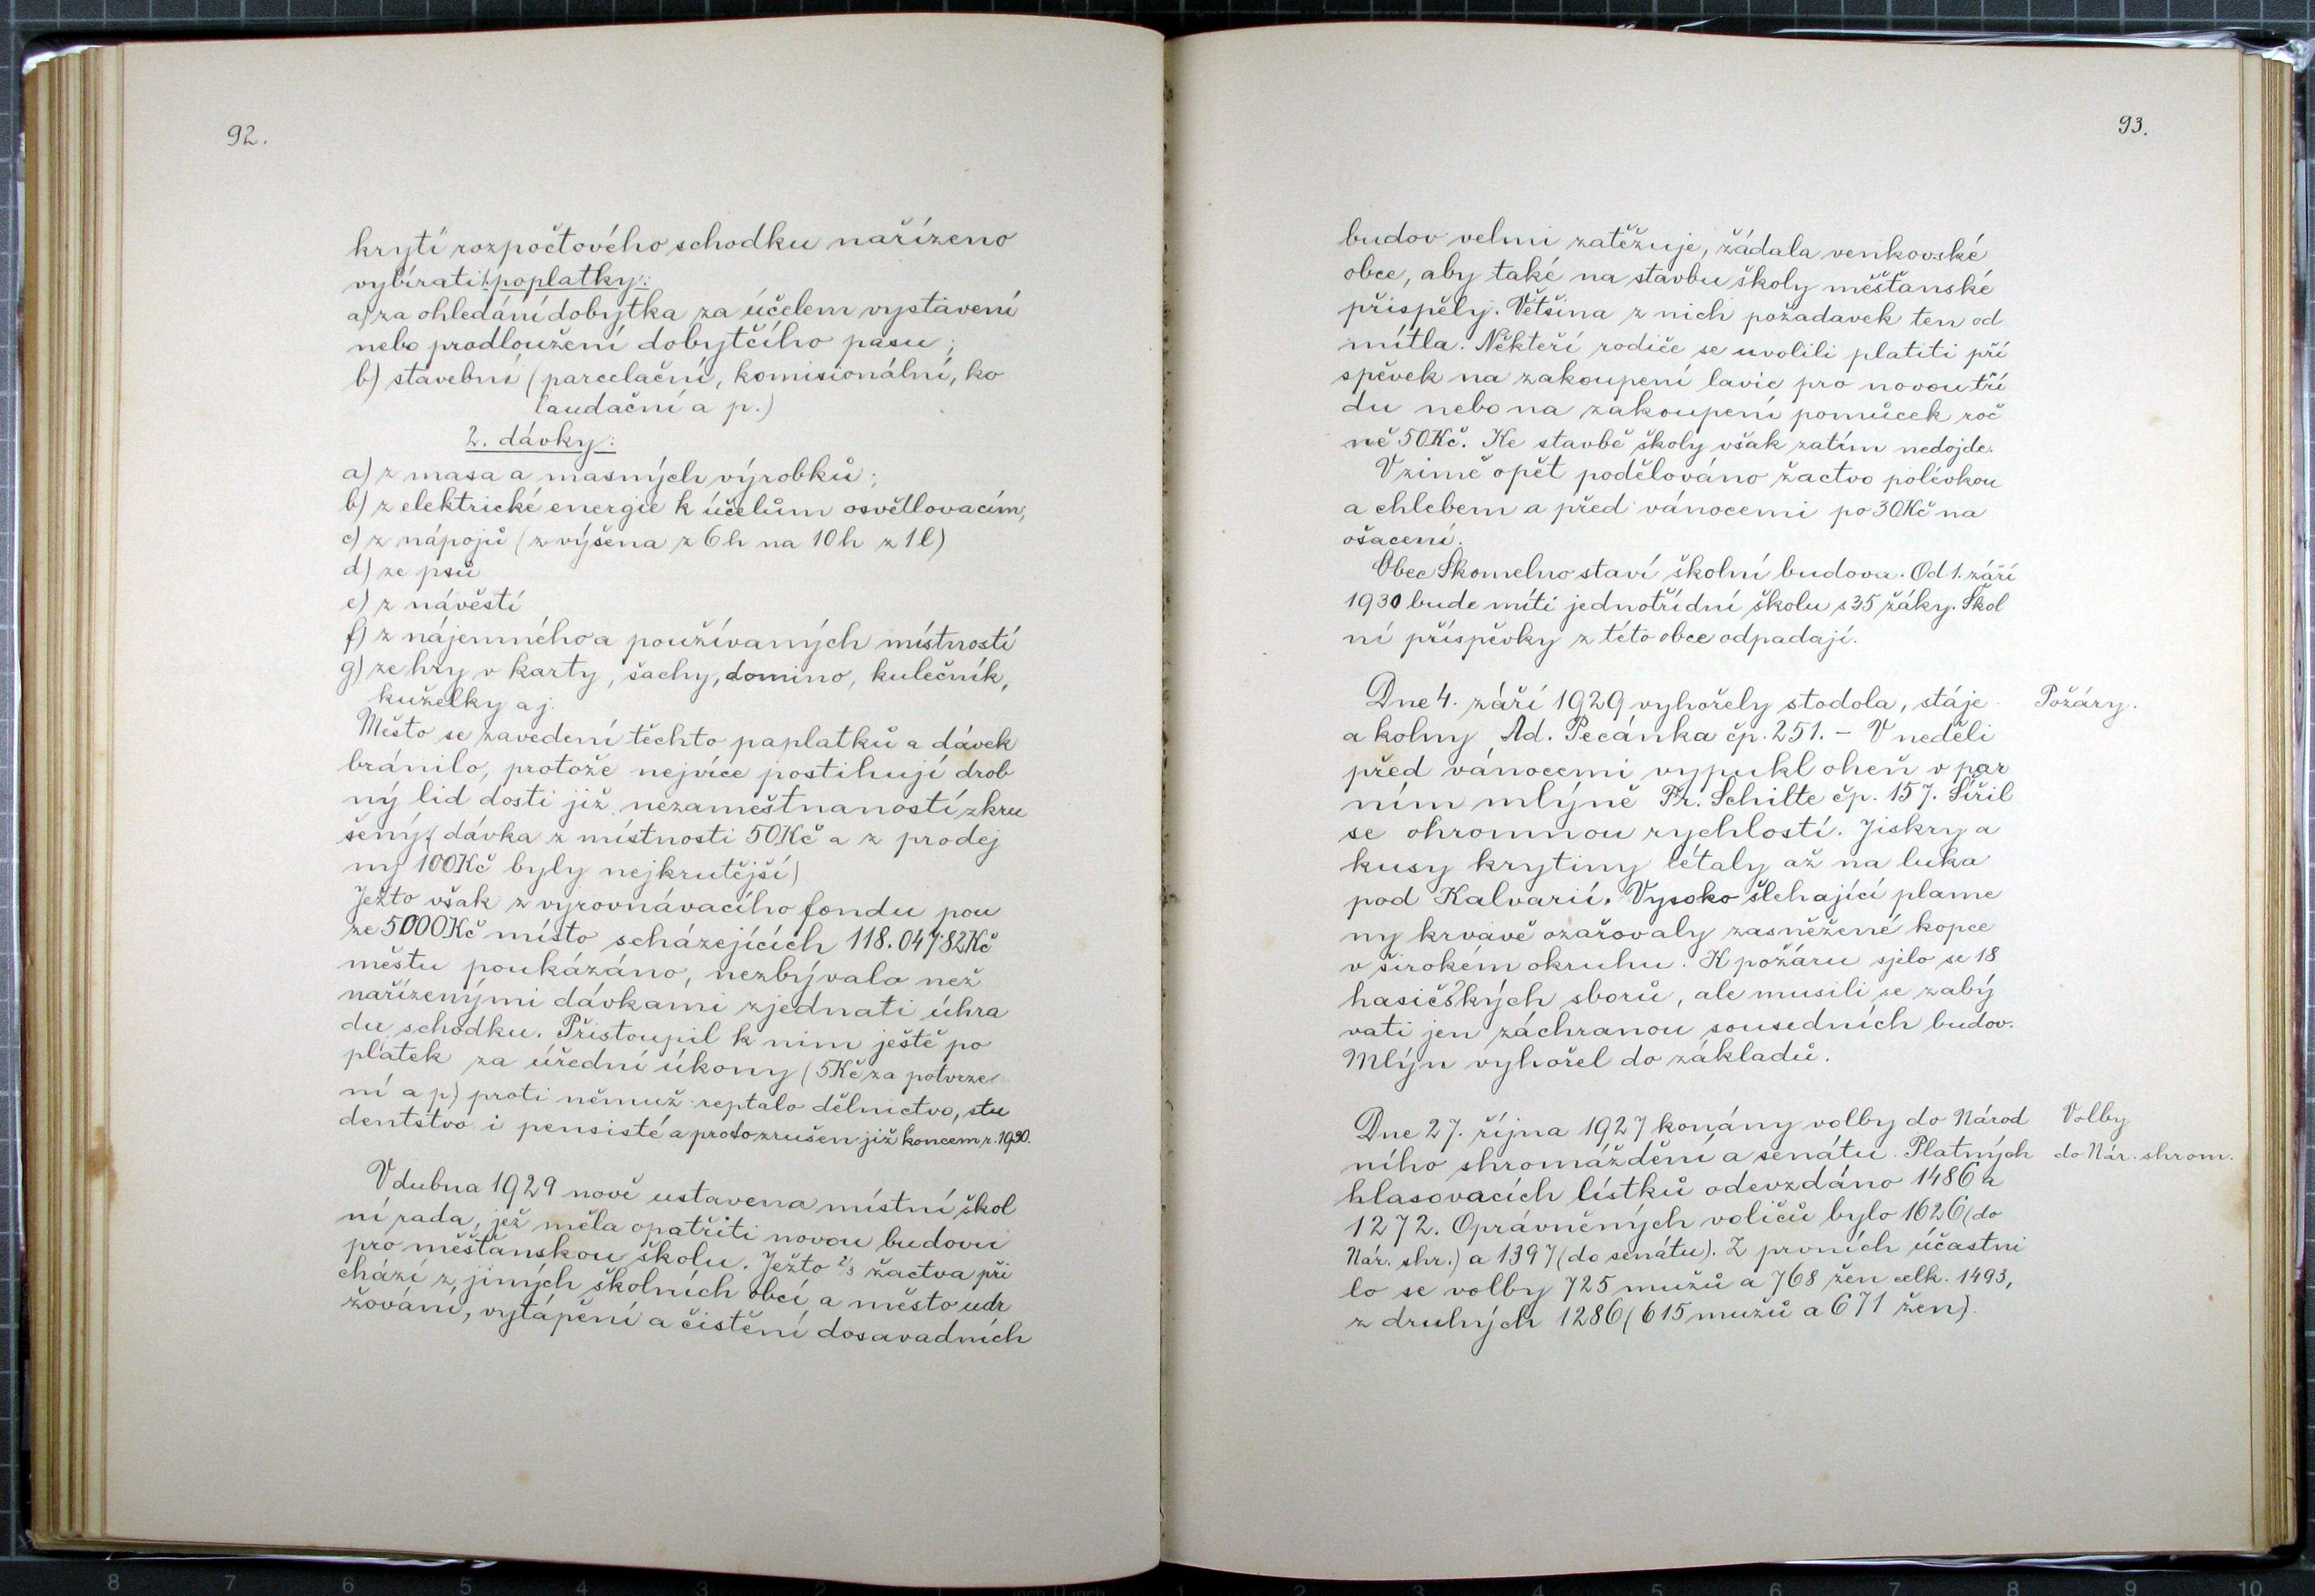 92.
krytí rozpočtového schodku nařízeno
vybírati: poplatky:
a) za ohledání dobytka za účelem vystavení
nebo prodloužení dobytčího pasu;
b) stavební (parcelační, komisionální, ko
laudační a p.)
2. dávky:
a) z masa a masných výrobků;
b) z elektrické energie k účelům osvětlovacím;
c) z nápojů (zvýšena z 6 h na 10 h z 1 l)
d) ze psů
e) z návěstí
f) z nájemného a používaných místností
g) ze hry v karty, šachy, domino, kulečník,
kuželky a j.
Město se zavedení těchto paplatků a dávek
bránilo, protože nejvíce postihují drob
ný lid dosti již nezaměstnaností zkru
šený (dávka z místnosti 50 Kč a z prodej
ny 100 Kč byly nejkrutější)
Ježto však z vyrovnávacího fondu pou
ze 5000 Kč místo scházejících 118.047.82 Kč
městu poukázáno, nezbývalo než
nařízenými dávkami zjednati úhra
du schodku. Přistoupil k nim ještě po
platek za úřední úkony (5 Kč za potvrze
ní a p) proti němuž reptalo dělnictvo, stu
dentstvo i pensisté a proto zrušen již koncem r. 1930.
V dubna 1929 nově ustavena místní škol
ní rada, jež měla opatřiti novou budovu
pro měšťanskou školu. Ježto 2/3 žactva při
chází z jiných školních obcí a město udr
žování, vytápění a čistění dosavadních
93.
budov velmi zatěžuje, žádala venkovské
obce, aby také na stavbu školy měšťanské
přispěly. Většina z nich požadavek ten od
mítla. Někteří rodiče se uvolili platiti pří
spěvek na zakoupení lavic pro novou tří
du nebo na zakoupení pomůcek roč
ně 50 Kč. Ke stavbě školy však zatím nedojde.
V zimě opět podělováno žactvo polévkou
a chlebem a před vánocemi po 30 Kč na
ošacení.
Obec Skomelno staví školní budovu. Od 1. září
1930 bude míti jednotřídní školu s 35 žáky. Škol
ní příspěvky z této obce odpadají.
Dne 4. září 1929 vyhořely stodola, stáje
Požáry.
a kolny Ad. Pecánka čp. 251. – V neděli
před vánocemi vypukl oheň v par
ním mlýně Fr. Schilte čp. 157. Šířil
se ohromnou rychlostí. Jiskry a
kusy krytiny létaly až na luka
pod Kalvarií. Vysoko šlehající plame
ny krvavě ozařovaly zasněžené kopce
v širokém okruhu. K požáru sjelo se 18
hasičských sborů, ale musili se zabý
vati jen záchranou sousedních budov.
Mlýn vyhořel do základů.
Dne 27. října 1927 konány volby do Národ
Volby
ního shromáždění a senátu. Platných
do Nár. shrom.
hlasovacích lístků odevzdáno 1486 a
1272. Oprávněných voličů bylo 1626 (do
Nár. shr.) a 1397 (do senátu). Z prvních účastni
lo se volby 725 mužů a 768 žen celk. 1493,
z druhých 1286 (615 mužů a 671 žen).